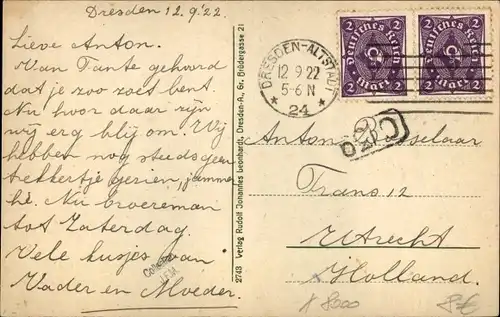 Dresden 12.9.'22
Lieve Anton.
Van Tante gehoord
dat je zoo zoet bent.
Nu hoor daar zijn
wij erg blij om. Wij
hebben nog steeds geen
trekkertje gezien, jammer
hè. Nu broereman
tot Zaterdag.
Vele kusjes van
Vader en Moeder.
2743 Verlag Rudolf Johannes Leonhardt, Dresden-A., Gr. Brüdergasse 21
DRESDEN-ALTSTADT
12 9 22
5-6 N
* 24 *
2 Deutsches Reich 2
2 Mark 2
2 Deutsches Reich 2
2 Mark 2
Anton
Trans 12
Utrecht
Holland.
8€